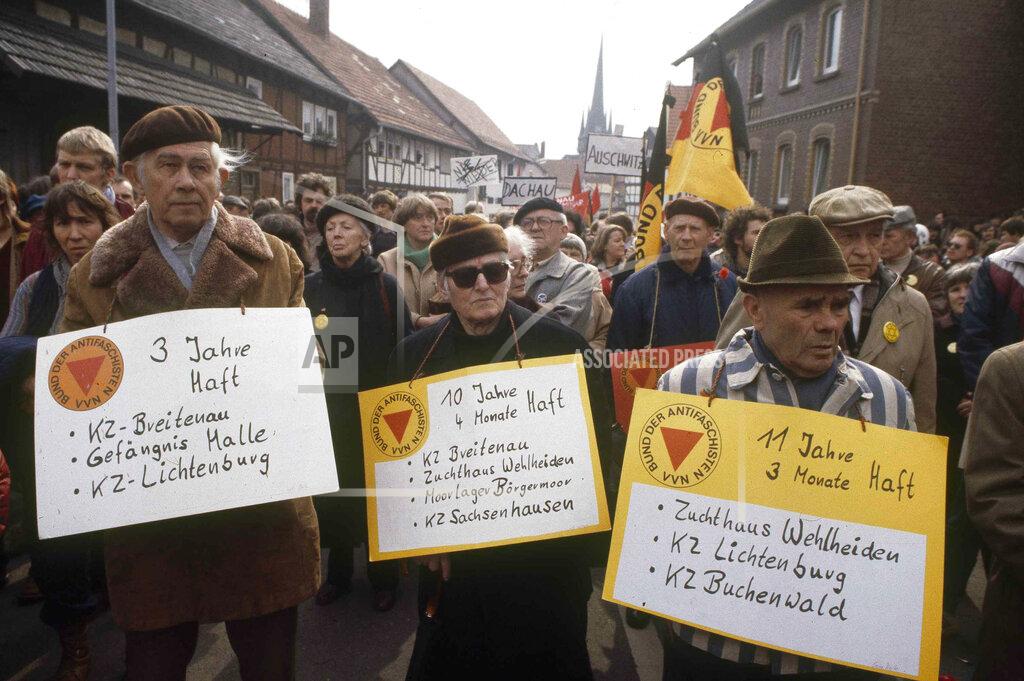 AUSCHWITZ
DACHAU
BUND DER
VVN
AP
ASSOCIATED PRESS
BUND DER ANTIFASCHISTEN VVN
3 Jahre
Haft
• KZ-Breitenau
• Gefängnis Halle
• KZ-Lichtenburg
BUND DER ANTIFASCHISTEN VVN
10 Jahre
4 Monate Haft
• KZ Breitenau
• Zuchthaus Wehlheiden
• Moorlager Börgermoor
• KZ Sachsenhausen
BUND DER ANTIFASCHISTEN VVN
11 Jahre
3 Monate Haft
• Zuchthaus Wehlheiden
• KZ Lichtenburg
• KZ Buchenwald